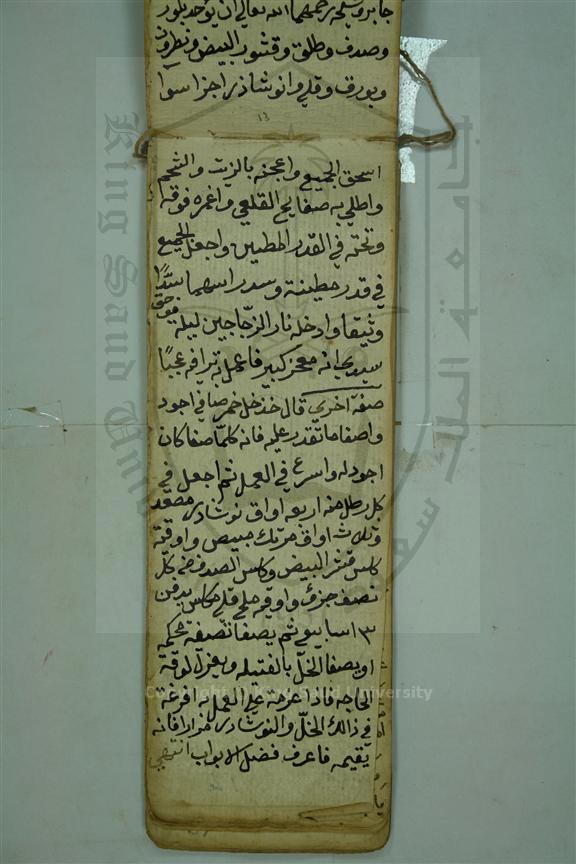 جابر وسلمه رحمهما الله تعالى ان يوخذ بلور
وصدف وطلق وقشور البيض ونطرون
وبورق وقلي وانوشادر اجزا سوا
13
اسحق الجميع واعجنه بالزيت والشحم
واطلي به صفايح القلعي واغمره فوقه
وتحته في القدر المطين واجعل الجميع
في قدر مطينة وسد راسهما سدًا
وثيقا وادخله نار الزجاجين ليلة
سيدي انه معجز كبير فاعمل به ترا فيه عجبًا
صفة اخرى قال خذ خل خمر صافي اجود
واصفا ما تقدر عليه فانه كلما صفا كان
اجود له واسرع في العمل ثم اجعل في
كل رطل منه اربعه اواق نوشادر مصعد
وثلاث اواق مرتك مبيض واوقية
كلس قشر البيض وكلس الصدف من كل
نصف جزؤ واوقية ملح قلي مكلس يدفن
٣ اسابيع ثم يصفا تصفية محكمه
او يصفا الخل بالفتيله ويعزل لوقة
الحاجه فاذا عزمة على العمل به افرغة
في ذالك الخل والنوشادر مرارا فانه
يقيمه فاعرف فضل الابواب انتهى
Copyright © King Saud University
King Saud University
جامعة الملك سعود